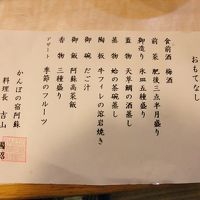 おもてなし
食前酒 梅酒
前菜 肥後三点半月盛り
御造り 氷皿五種盛り
蓋物 天草鯛の酒蒸し
蒸物 蛤の茶碗蒸し
陶板 牛フィレの溶岩焼き
御椀 だご汁
御飯 阿蘇高菜飯
香物 三種盛り
デザート 季節のフルーツ
かんぽの宿阿蘇
料理長 吉山